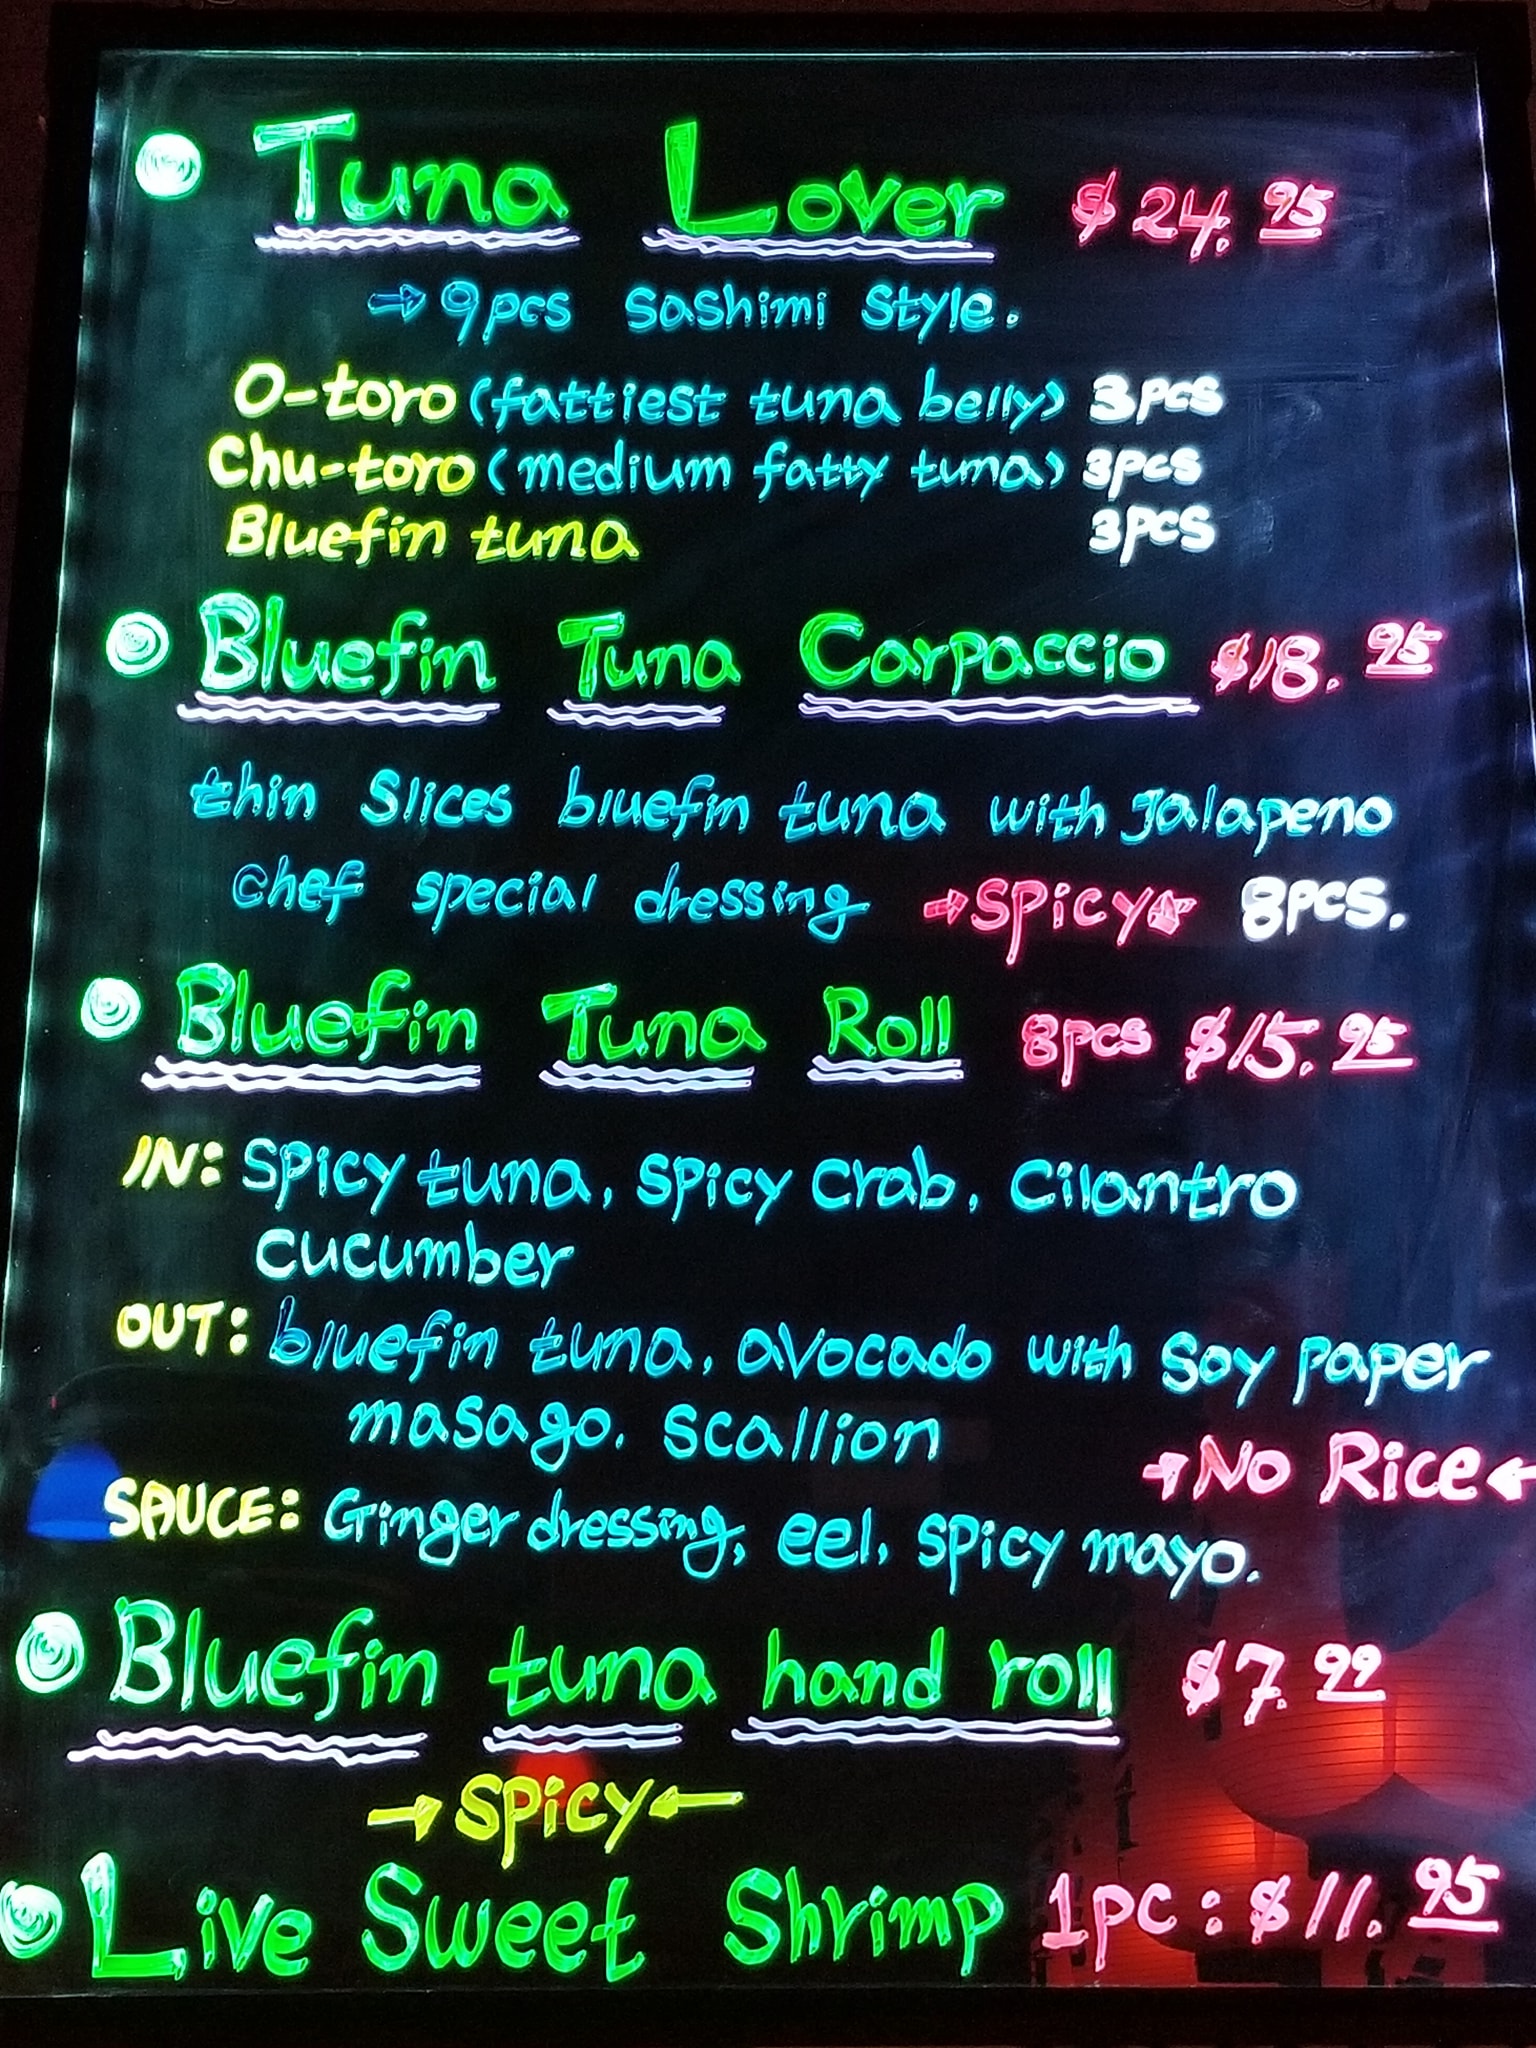 Tuna Lover $24.95
→ 9pcs Sashimi Style.
O-toro (fattiest tuna belly) 3pcs
Chu-toro (medium fatty tuna) 3pcs
Bluefin tuna 3pcs
Bluefin Tuna Carpaccio $18.95
thin Slices bluefin tuna with Jalapeno
chef special dressing →Spicy← 8pcs.
Bluefin Tuna Roll 8pcs $15.95
IN: Spicy tuna, Spicy Crab, Cilantro
cucumber
OUT: bluefin tuna, avocado with Soy Paper
masago. scallion
→No Rice←
SAUCE: Ginger dressing, eel, spicy mayo.
Bluefin tuna hand roll $7.99
→Spicy←
Live Sweet Shrimp 1pc: $11.95